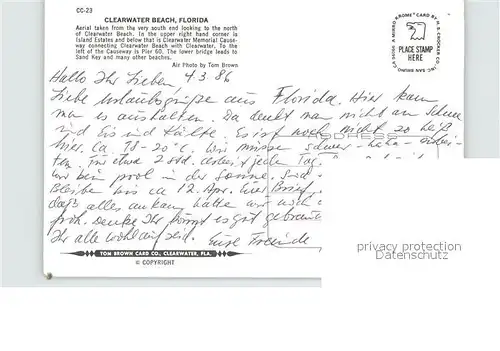 CC-23
CLEARWATER BEACH, FLORIDA
Aerial taken from the very south end looking to the north
of Clearwater Beach. In the upper right hand corner is
Island Estates and below that is Clearwater Memorial Cause-
way connecting Clearwater Beach with Clearwater. To the
left of the Causeway is Pier 60. The lower bridge leads to
Sand Key and many other beaches.
Air Photo by Tom Brown
PLACE STAMP
HERE
A MIRRO-KROME® CARD BY H. S. CROCKER CO., INC.
Hallo Ihr Lieben, 4.3.86
Liebe Urlaubsgrüße aus Florida. Hier kann
man es aushalten. Da denkt man nicht an Schnee
und Eis und Kälte. Es ist noch nicht so heiß
hier. Ca. 18-20°C. Wir müssen schwer
ten. Für etwa 2 Std. jeden Tag.
wir beim pool in der Sonne. Sind
Bleiben bis ca 12. Apr. Euer Brief
daß alles ankam hatte
froh. Denke Ihr könnt es gut gebrauch
Ihr alle wohlauf seid. Eure Freunde
ADRESSE
privacy protection
Datenschutz
TOM BROWN CARD CO., CLEARWATER, FLA.
© COPYRIGHT